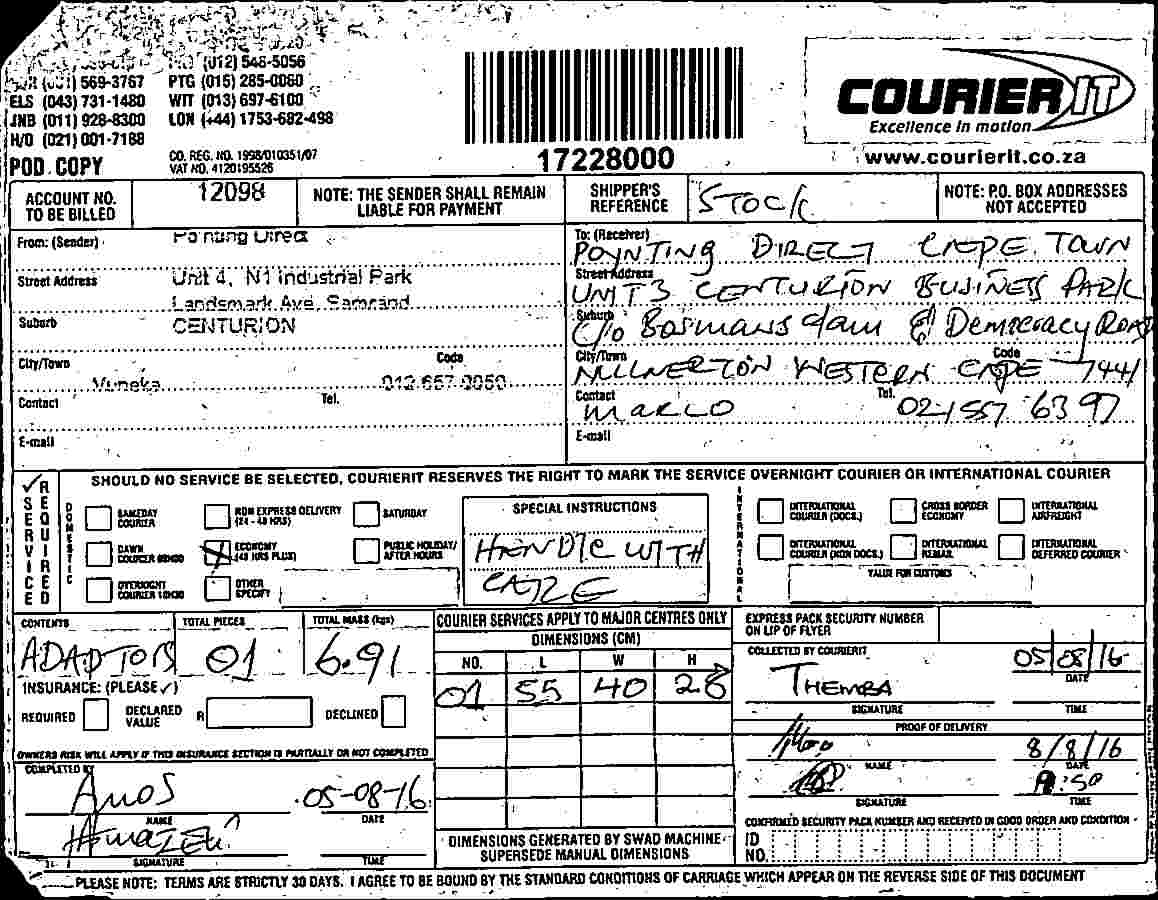 (012) 546-5056
569-3767 PTG (015) 285-0060
ELS (043) 731-1480 WIT (013) 697-6100
JNB (011) 928-8300 LON (+44) 1753-682-498
H/O (021) 001-7188
POD COPY
CO. REG. NO. 1998/010351/07
VAT NO. 4120195526
17228000
COURIER IT
Excellence in motion
www.courierit.co.za
ACCOUNT NO. TO BE BILLED
12098
NOTE: THE SENDER SHALL REMAIN LIABLE FOR PAYMENT
SHIPPER'S REFERENCE
STOCK
NOTE: P.O. BOX ADDRESSES NOT ACCEPTED
From: (Sender)
Direct
Street Address
Unit 4, N1 Industrial Park
Landsmark Ave, Samrand
Suburb
CENTURION
City/Town Code
012 657 0050
Contact Tel.
E-mail
To: (Receiver)
POYNTING DIRECT CAPE TOWN
Street Address
UNIT 3 CENTURION BUSINESS PARK
Suburb
C/o Bosmans dam & Democracy Road
City/Town Code
MILNERTON WESTERN CAPE 7441
Contact Tel.
MARCO 021 557 6397
E-mail
SERVICE REQUIRED
SHOULD NO SERVICE BE SELECTED, COURIERIT RESERVES THE RIGHT TO MARK THE SERVICE OVERNIGHT COURIER OR INTERNATIONAL COURIER
DOMESTIC
SAMEDAY COURIER
NON EXPRESS DELIVERY (24 - 48 HRS)
SATURDAY
DAWN COURIER 08H00
ECONOMY (48 HRS PLUS)
PUBLIC HOLIDAY/ AFTER HOURS
OVERNIGHT COURIER 10H30
OTHER SPECIFY
SPECIAL INSTRUCTIONS
HANDLE WITH
CARE
INTERNATIONAL
INTERNATIONAL COURIER (DOCS.)
CROSS BORDER ECONOMY
INTERNATIONAL AIRFREIGHT
INTERNATIONAL COURIER (NON DOCS.)
INTERNATIONAL REMAIL
INTERNATIONAL DEFERRED COURIER
VALUE FOR CUSTOMS
CONTENTS TOTAL PIECES TOTAL MASS (kgs)
ADAPTORS 01 6.91
INSURANCE: (PLEASE ✓)
REQUIRED DECLARED VALUE R DECLINED
OWNERS RISK WILL APPLY IF THIS INSURANCE SECTION IS PARTIALLY OR NOT COMPLETED
COMPLETED BY
Amos 05-08-16
NAME DATE
SIGNATURE TIME
COURIER SERVICES APPLY TO MAJOR CENTRES ONLY
DIMENSIONS (CM)
NO. L W H
01 55 40 28
DIMENSIONS GENERATED BY SWAD MACHINE SUPERSEDE MANUAL DIMENSIONS
EXPRESS PACK SECURITY NUMBER ON LIP OF FLYER
COLLECTED BY COURIERIT
THEMBA 05/08/16
DATE
SIGNATURE TIME
PROOF OF DELIVERY
8/8/16
NAME DATE
:50
SIGNATURE TIME
CONFIRMED SECURITY PACK NUMBER AND RECEIVED IN GOOD ORDER AND CONDITION
ID NO.
PLEASE NOTE: TERMS ARE STRICTLY 30 DAYS. I AGREE TO BE BOUND BY THE STANDARD CONDITIONS OF CARRIAGE WHICH APPEAR ON THE REVERSE SIDE OF THIS DOCUMENT